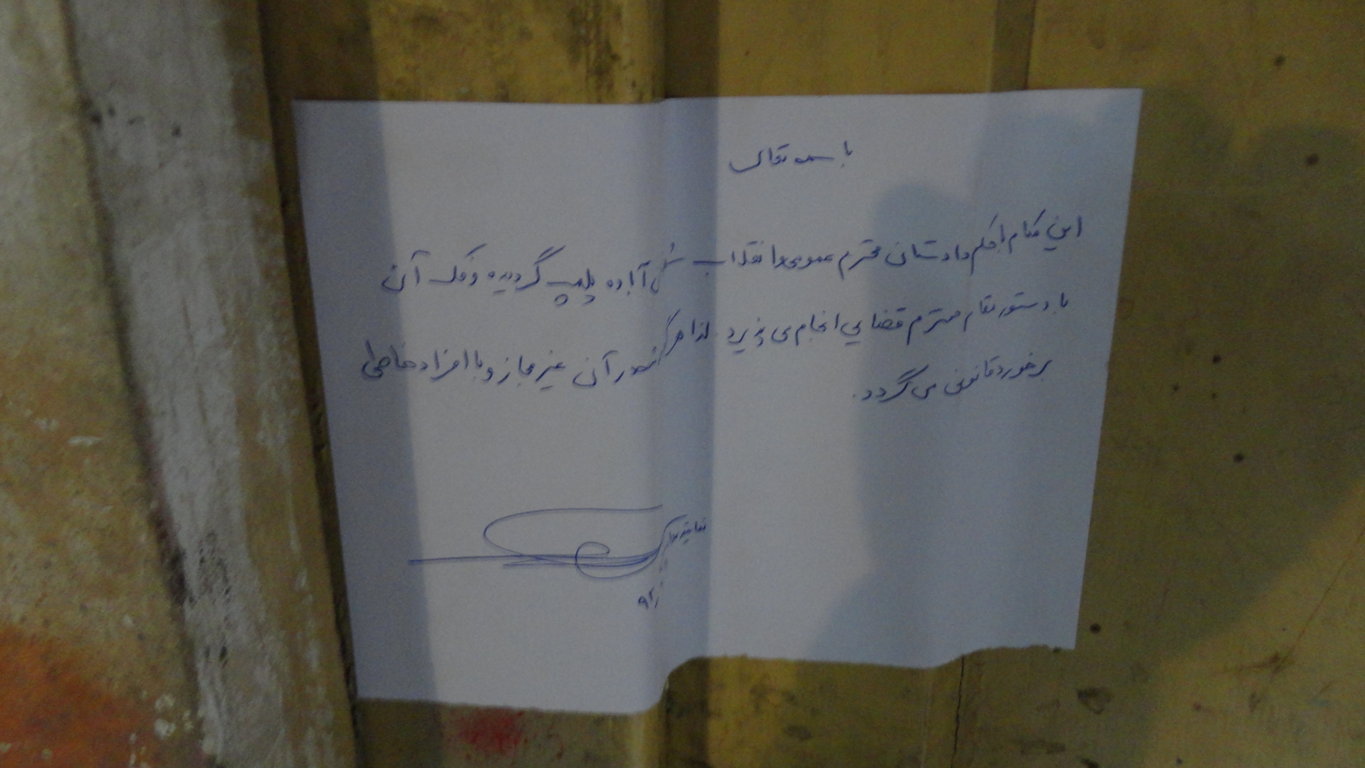 باسمه تعالی
این مکان به حکم دادستانی محترم عمومی و انقلاب آباده پلمپ گردیده و فک آن
با دستور مقام محترم قضایی انجام می پذیرد. لذا هرگونه در آن غیر مجاز و با افراد خاطی
برخورد قانونی می گردد.
نماینده